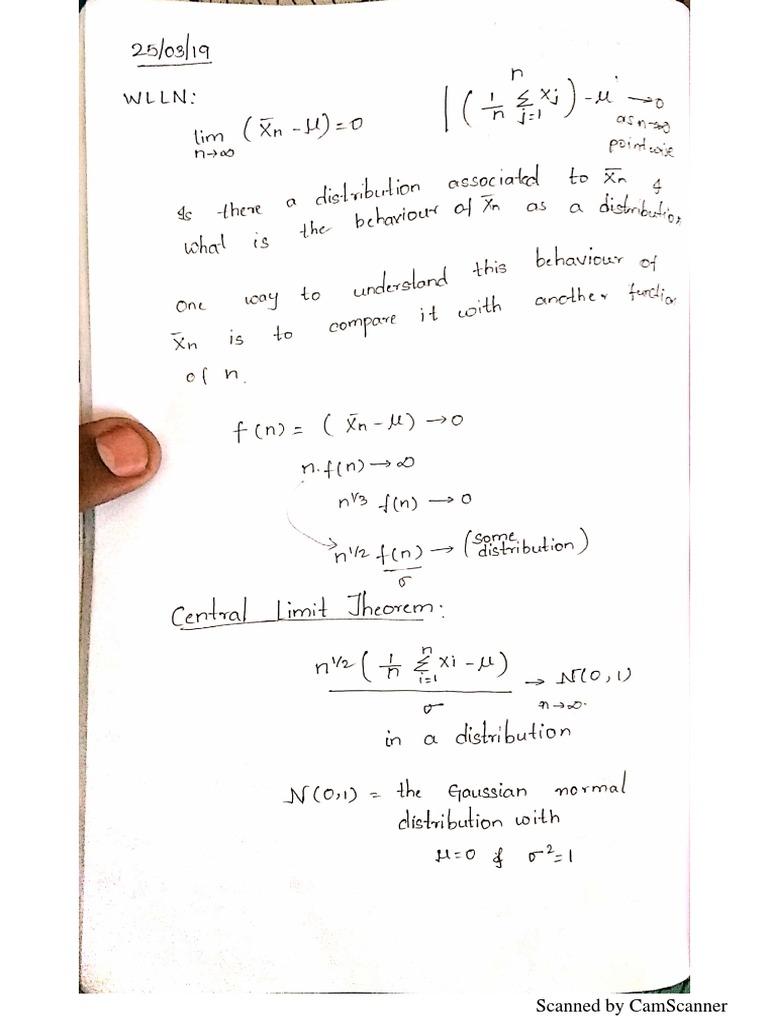 25/03/19
WLLN:
lim (x̄n - μ) = 0
n→∞
| ( 1/n Σ_{j=1}^{n} xj ) - μ | → 0
as n→∞
pointwise
Is there a distribution associated to x̄n &
what is the behaviour of x̄n as a distribution
One way to understand this behaviour of
x̄n is to compare it with another function
of n.
f(n) = (x̄n - μ) → 0
n.f(n) → ∞
n^{1/3} f(n) → 0
n^{1/2} f(n)/σ → (some distribution)
Central Limit Theorem:
n^{1/2} ( 1/n Σ_{i=1}^{n} xi - μ ) / σ → N(0,1)
n→∞.
in a distribution
N(0,1) = the Gaussian normal
distribution with
μ=0 & σ²=1
Scanned by CamScanner